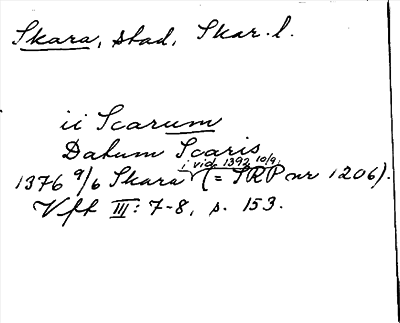 Skara, stad, Skar. l.
ii Scarum
Datum Scaris
i vid. 1392 10/9.
1376 9/6 Skara (= SRP nr 1206).
Vff III: 7-8, s. 153.